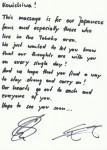 Konichiwa!
This message is for our Japanese
fans and especially those who
live in the Tohoku area.
We just wanted to let you know
that our thoughts are with you
on every single day!
And we hope that you find a way
to stay strong and carry on.
Our hearts go out to each and
everyone of you.
Hope to see you soon...